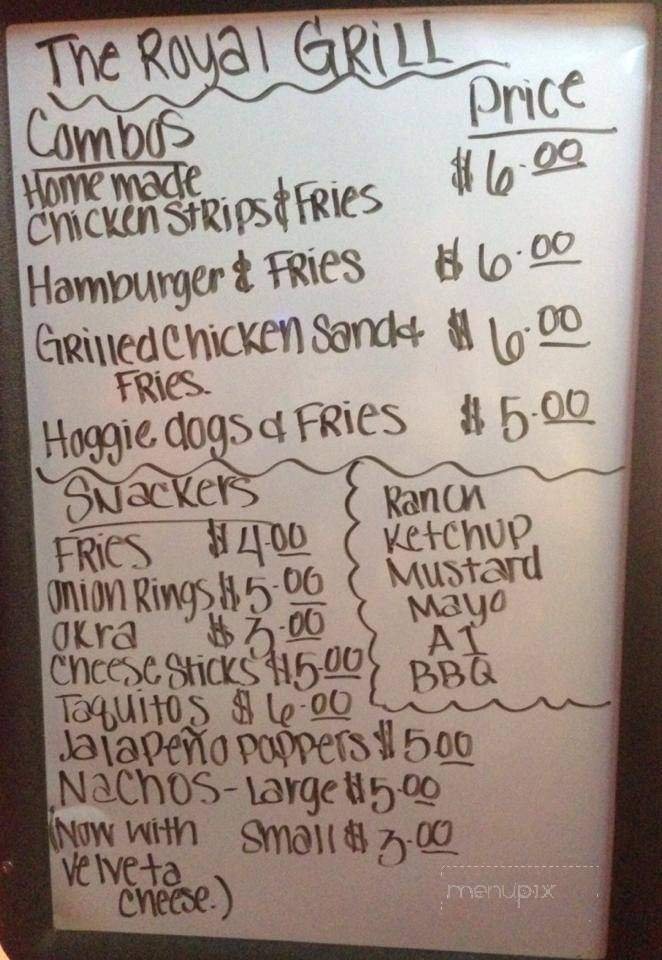 The Royal GRILL
Price
Combos
Homemade
Chicken Strips & Fries $6.00
Hamburger & Fries $6.00
Grilled Chicken Sand & $6.00
Fries.
Hoggie dogs & Fries $5.00
Snackers
Fries $4.00
Onion Rings $5.00
Okra $3.00
Cheese Sticks $5.00
Taquitos $6.00
Jalapeño Poppers $5.00
Nachos - Large $5.00
(Now with Small $3.00
Velveta
Cheese.)
Ranch
Ketchup
Mustard
Mayo
A1
BBQ
menupix